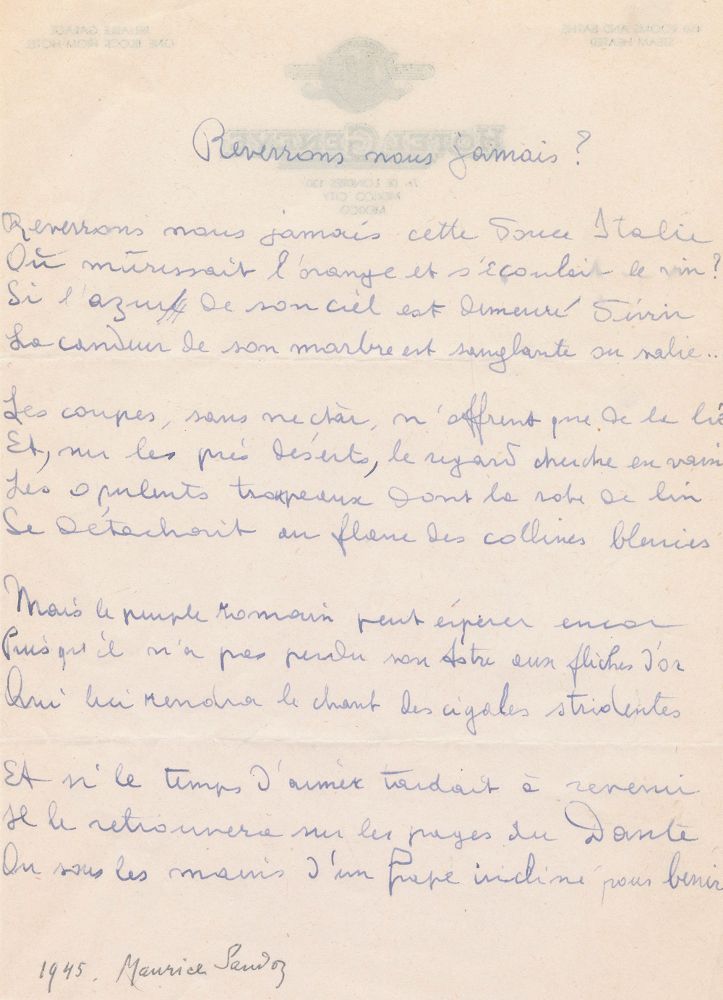 Reverrons nous jamais ?
Reverrons nous jamais cette douce Italie
Où mûrissait l'orange et s'écoulait le vin ?
Si l'azur de son ciel est demeuré divin
La candeur de son marbre est sanglante ou salie..
Les coupes, sans nectar, n'offrent que de la lie
Et, sur les prés déserts, le regard cherche en vain
Les opulents troupeaux dont la robe de lin
Se détachait au flanc des collines bleuies
Mais le peuple romain peut espérer encor
Puisqu'il n'a pas perdu son Astre aux flèches d'or
Qui lui rendra le chant des cigales stridentes
Et si le temps d'aimer tardait à revenir
Il le retrouvera sur les pages du Dante
Ou sous les mains d'un Pape incliné pour bénir
1945. Maurice Sandoz